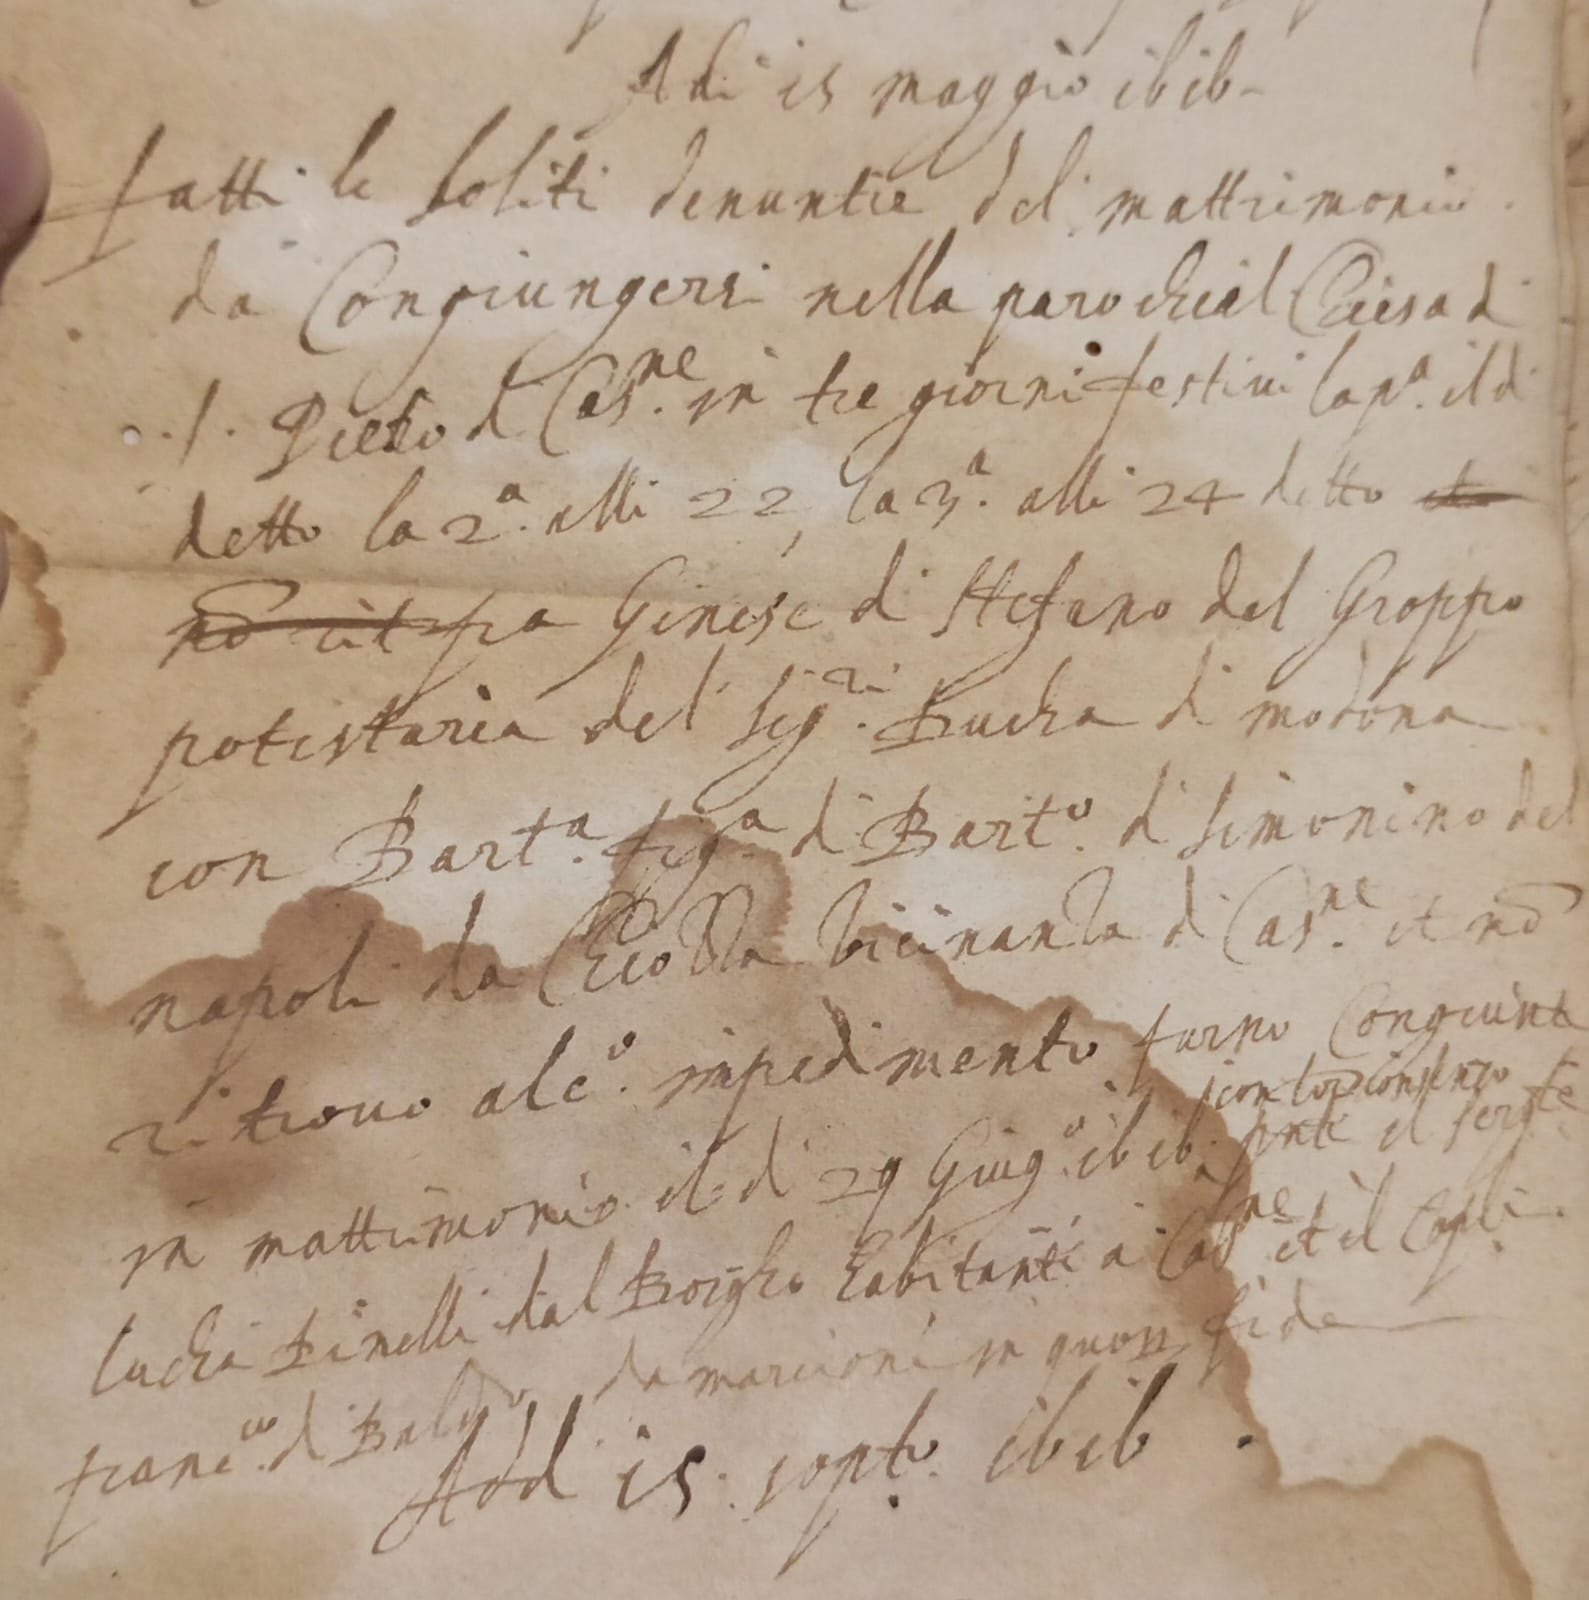 Adi 15 maggio 1616
fatti le soliti denuntie del mattrimonio
da Congiungersi nella parochial Chiesa di
S. Pietro di Cas.ne in tre giorni festivi la p.a il di
detto la 2.a alli 22, la 3.a alli 24 detto
fra Ginese di Stefano del Groppo
potestaria del Sig.ri Bucha di modona
con Bart.a fig.a di Bart.o di Simonino del
napoli da Chiozza vicinanza di Cas.ne et nō
ritrovo alc.o impedimento furno Congiunti
con lor consenso
in mattrimonio il di 29 Giug.o 1616 pnti il serg.te
lucha Binelli dal Borgho habitanti a Cas.ne et il Capl.
franc.co di da marcioni in quor fide
Add 15 sept.o 1616